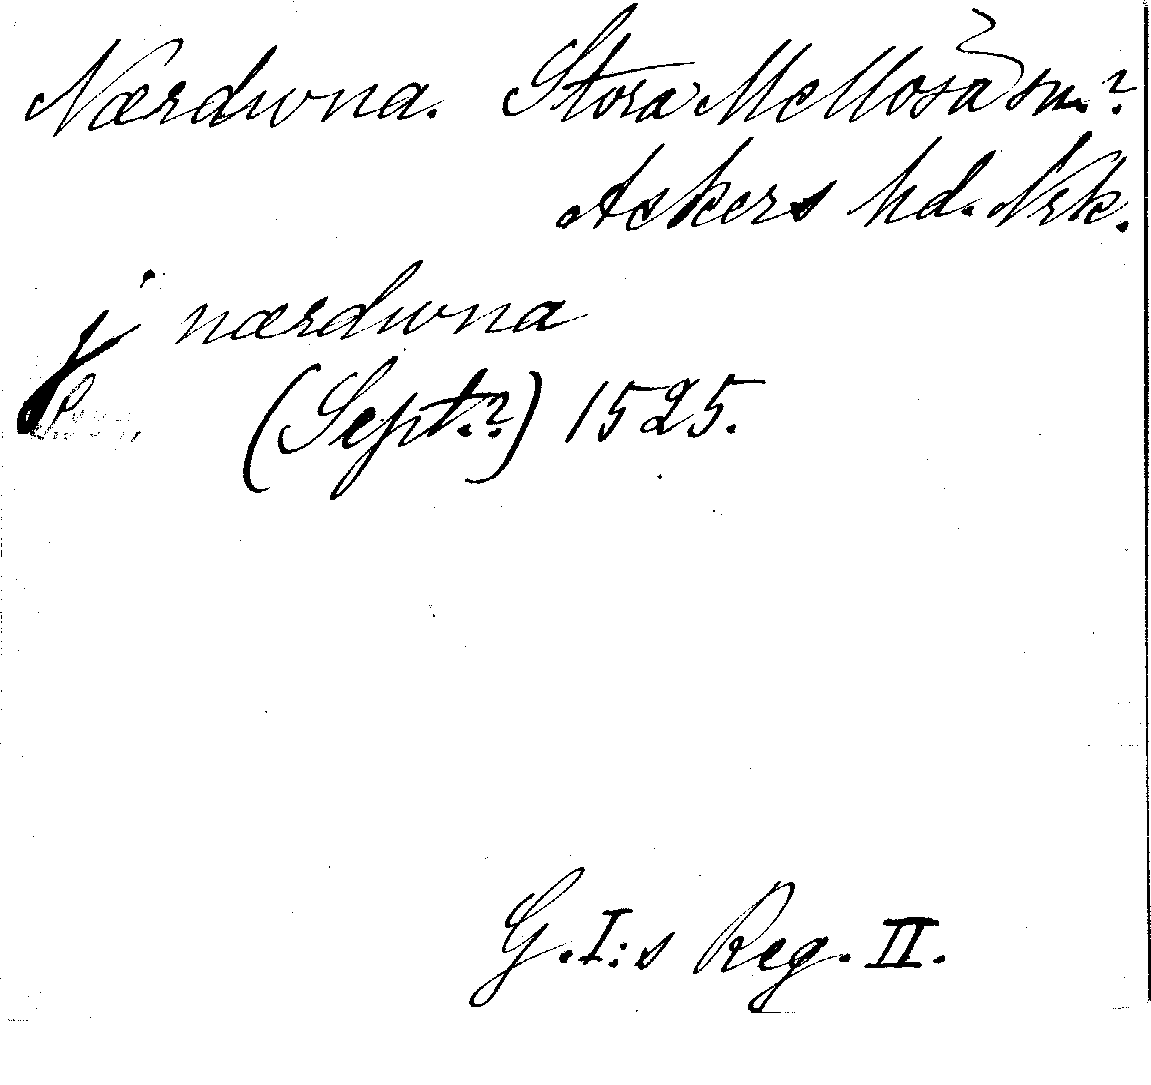 Nærdwna. Stora Mellosa sn.?
Askers hd. Nrk.
j nærdwna
(Sept.?) 1525.
G.I:s Reg. II.